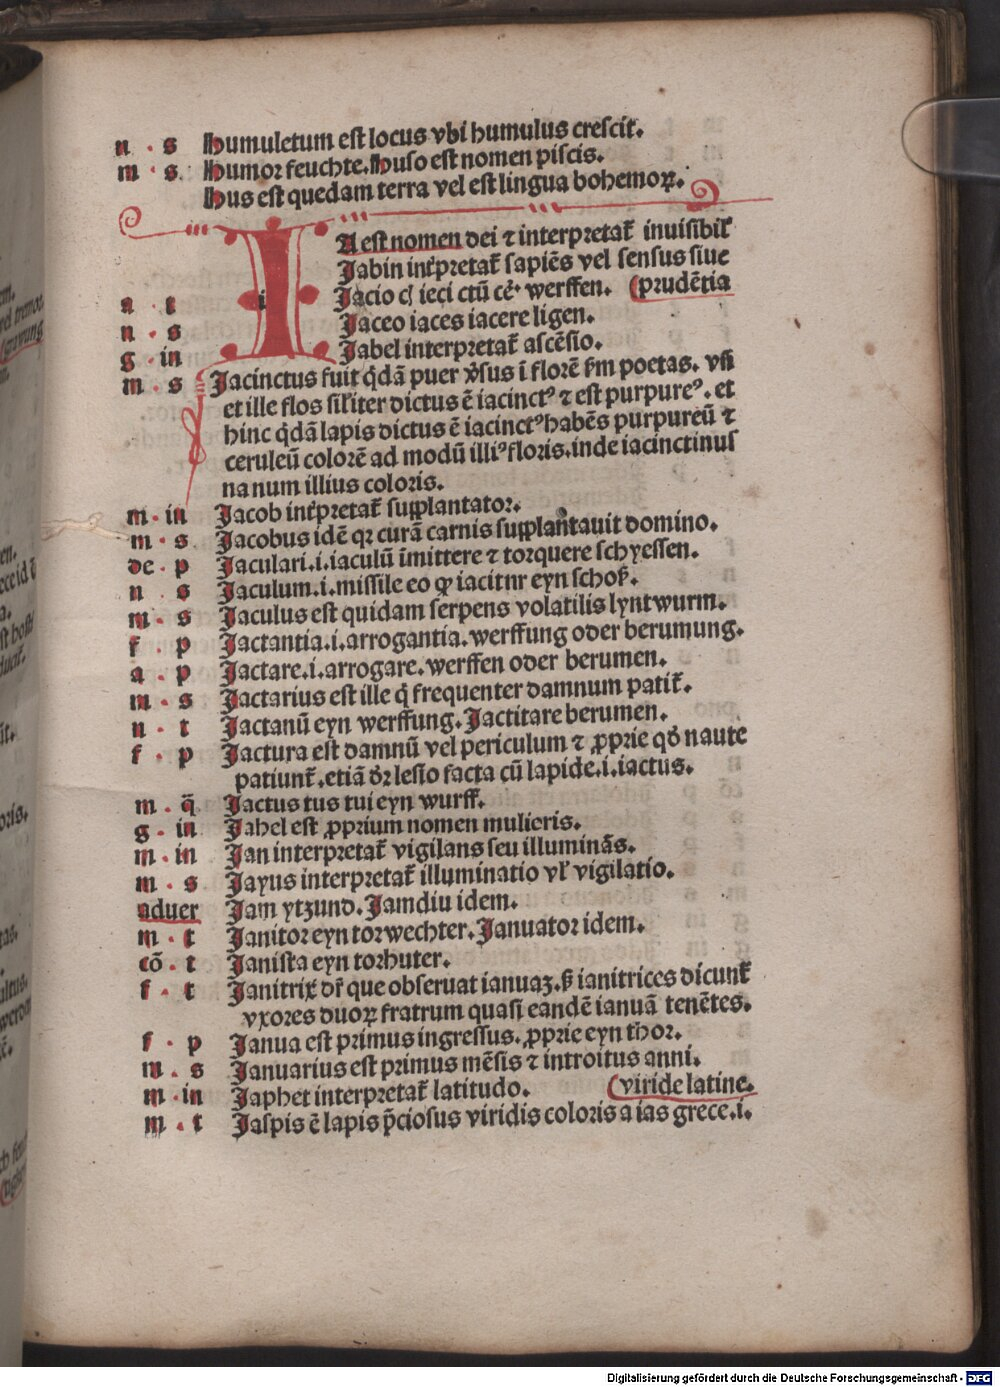 n . s humuletum est locus vbi humulus crescit.
m . s. humor feuchte. huso est nomen piscis.
hus est quedam terra vel est lingua bohemoꝝ.
IA est nomen dei ⁊ interpretat̄ inuisibil̄
Jabin int̄pretat̄ sapiēs vel sensus siue
a . t Jacio cꝭ ieci ctū cē. werffen. (prudētia
n . s Jaceo iaces iacere ligen.
g . in Jabel interpretat̄ ascēsio.
m . s Jacinctus fuit q̄dā puer v̓sus ī florē ẜm poetas. vn̄
et ille flos sil̓iter dictus ē iacinctꝰ ⁊ est purpureꝰ. et
hinc q̄dā lapis dictus ē iacinctꝰ habēs purpureū ⁊
ceruleū colorē ad modū illiꝰ floris. inde iacinctinus
na num illius coloris.
m . in Jacob int̄pretat̄ supplantator.
m . s Jacobus idē qꝛ curā carnis supplantauit domino.
de . p Jaculari .i. iaculū īmittere ⁊ torquere schyessen.
n . s Jaculum .i. missile eo ꝙ iacitnr eyn schoß.
m . s Jaculus est quidam serpens volatilis lyntwurm.
f . p Jactantia .i. arrogantia. werffung oder berumung.
a . p Jactare .i. arrogare. werffen oder berumen.
m . s Jactarius est ille q̄ frequenter damnum patit̄.
n . t Jactanū eyn werffung. Jactitare berumen.
f . p Jactura est damnū vel periculum ⁊ ꝓprie qd̓ naute
patiunt̄. etiā dr̄ lesio facta cū lapide .i. iactus.
m . q̄ Jactus tus tui eyn wurff.
g . in Jahel est ꝓprium nomen mulieris.
m . in Jan interpretat̄ vigilans seu illuminās.
m . s Jayus interpretat̄ illuminatio vl̓ vigilatio.
aduer Jam ytzund. Jamdiu idem.
m . t Janitor eyn torwechter. Januator idem.
cō . t Janista eyn torhuter.
f . t Janitrix dr̄ que obseruat ianuaꝫ. ß ianitrices dicunt̄
vxores duoꝝ fratrum quasi eandē ianuā tenētes.
f . p Janua est primus ingressus. ꝓprie eyn thor.
m . s Januarius est primus mēsis ⁊ introitus anni.
m . in Japhet interpretat̄ latitudo. (viride latine.
m . t Jaspis ē lapis p̄ciosus viridis coloris a ias grece .i.
Digitalisierung gefördert durch die Deutsche Forschungsgemeinschaft - DFG